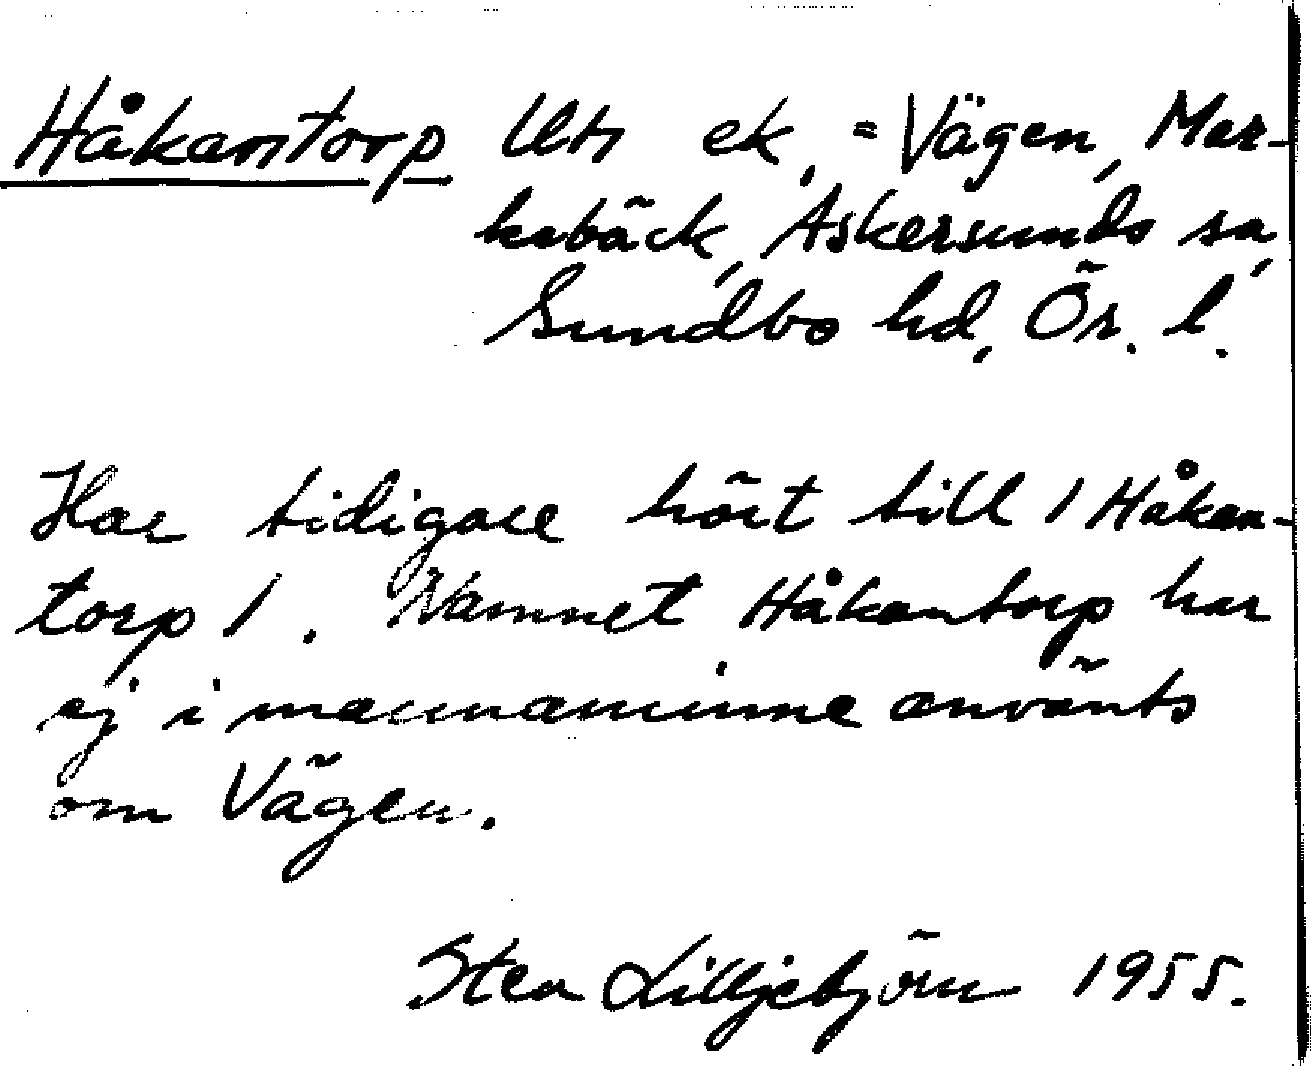 Håkantorp Utr ek, = Vägen, Mar-
kebäck, Askersunds sn,
Sundbo hd, Ör. l.
Har tidigare hört till 1 Håkan-
torp 1. Namnet Håkantorp har
ej i mannaminne använts
om Vägen.
Sten Lilljebjörn 1955.